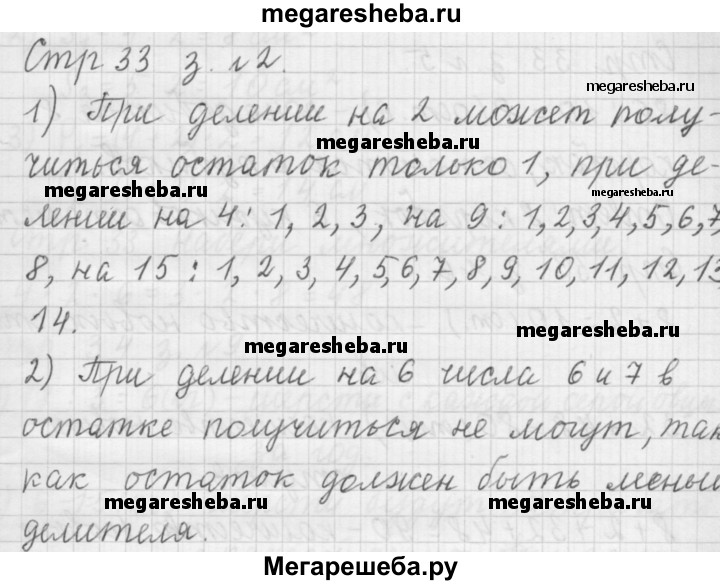 megaresheba.ru
Стр 33 з. №2.
megaresheba.ru
1) При делении на 2 может полу-
megaresheba.ru
читься остаток только 1, при де-
megaresheba.ru megaresheba.ru
лении на 4: 1, 2, 3, на 9: 1,2,3,4,5,6,7,
8, на 15 : 1, 2, 3, 4, 5,6,7,8,9, 10, 11, 12, 13
14.
megaresheba.ru
megaresheba.ru
2) При делении на 6 числа 6 и 7 в
остатке получиться не могут, так
как остаток должен быть меньш
megaresheba.ru megaresheba.ru
делителя.
Мегарешеба.ру